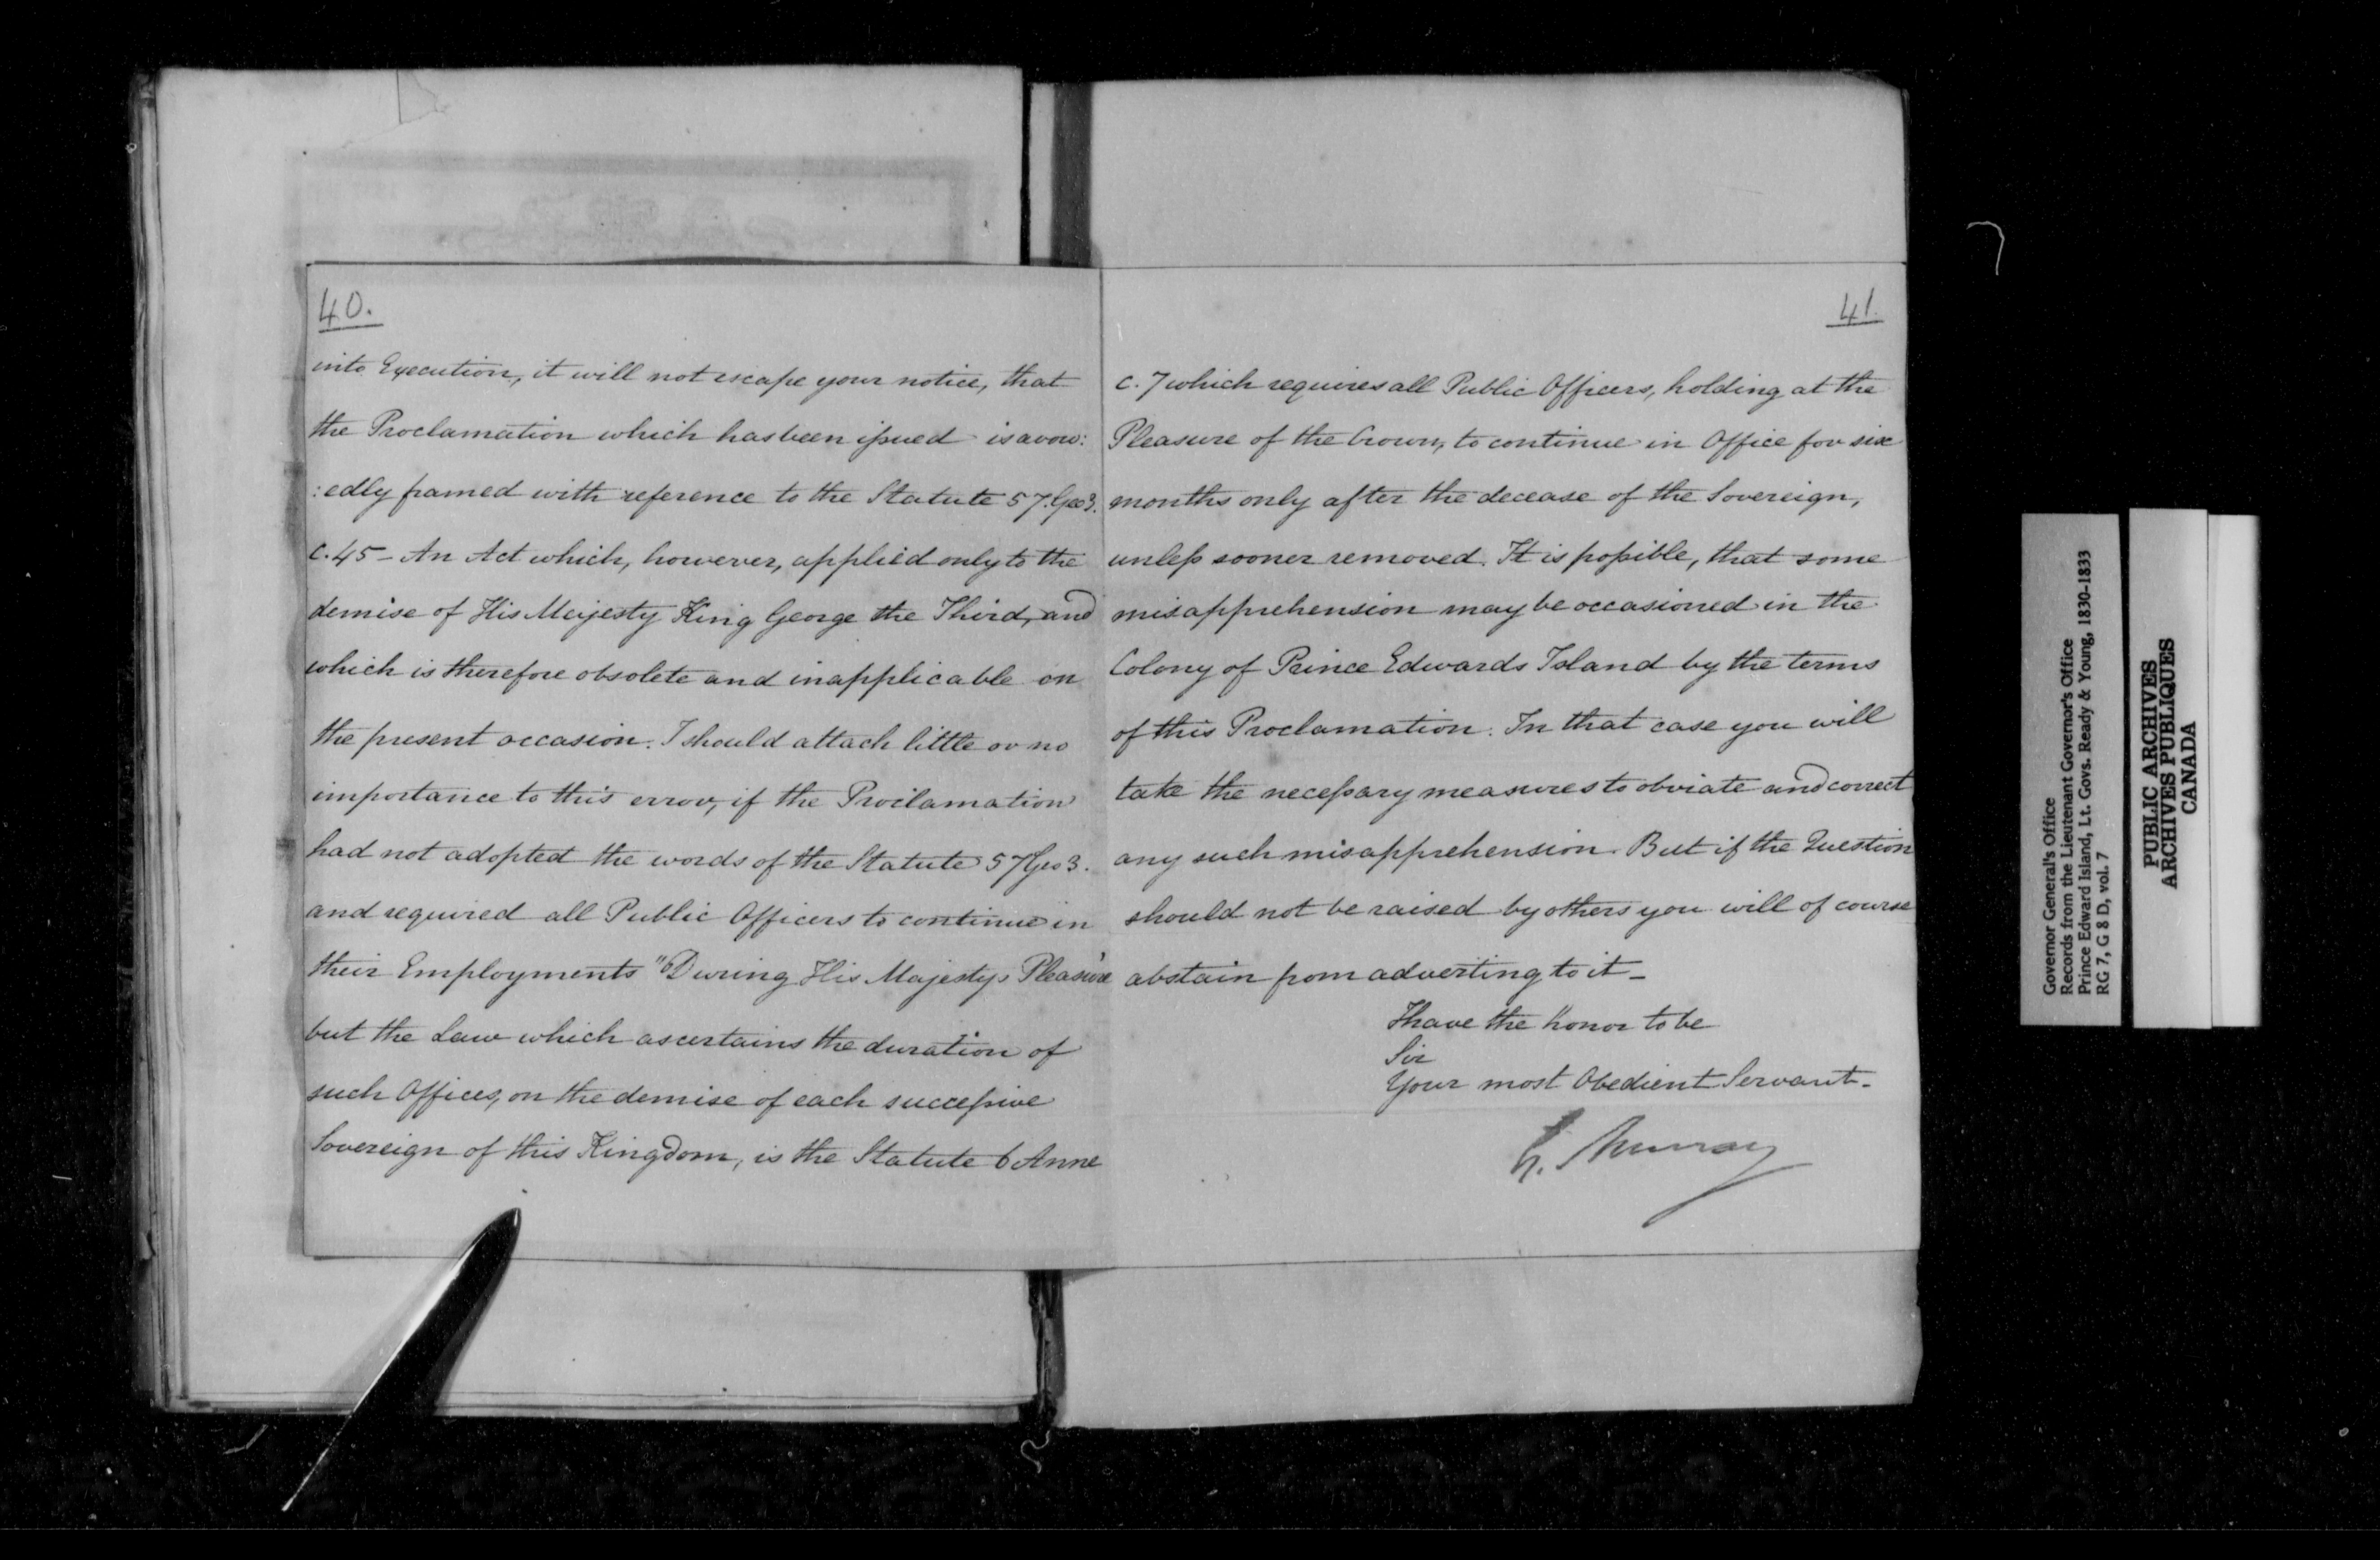 40.
into Execution, it will not escape your notice, that
the Proclamation which has been issued is avow:
:edly framed with reference to the Statute 57. Geo 3.
C. 45 - An Act which, however, applied only to the
demise of His Majesty King George the Third, and
which is therefore obsolete and inapplicable on
the present occasion. I should attach little or no
importance to this error, if the Proclamation
had not adopted the words of the Statute 57 Geo 3.
and required all Public Officers to continue in
their Employments "During His Majestys Pleasure
but the Law which ascertains the duration of
such Offices, on the demise of each successive
Sovereign of this Kingdom, is the Statute 6 Anne
41.
c. 7 which requires all Public Officers, holding at the
Pleasure of the Crown, to continue in Office for six
months only after the decease of the Sovereign,
unless sooner removed. It is possible, that some
misapprehension may be occasioned in the
Colony of Prince Edwards Island by the terms
of this Proclamation. In that case you will
take the necessary measures to obviate and correct
any such misapprehension. But if the Question
should not be raised by others you will of course
abstain from adverting to it -
I have the honor to be
Sir
Your most Obedient Servant -
G. Murray
Governor General's Office
Records from the Lieutenant Governor's Office
Prince Edward Island, Lt. Govs. Ready & Young, 1830-1833
RG 7, G 8 D, vol. 7
PUBLIC ARCHIVES
ARCHIVES PUBLIQUES
CANADA